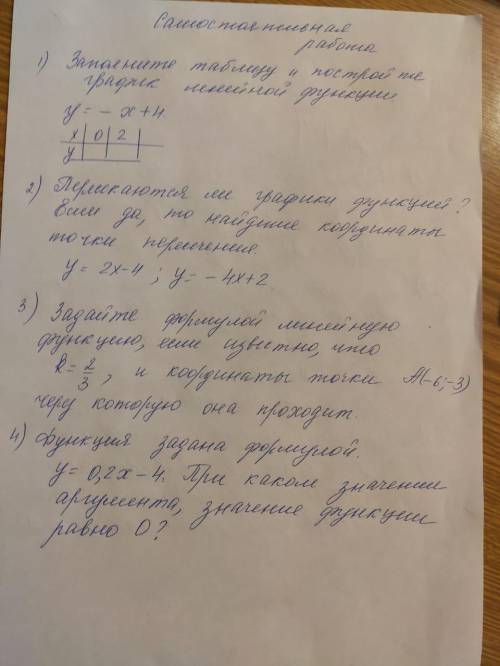 Самостоятельная
работа
1) Заполните таблицу и постройте
график линейной функции.
y = - x + 4.
x | 0 | 2 |
y
2) Пересекаются ли графики функций?
Если да, то найдите координаты
точки пересечения.
y = 2x-4 ; y = - 4x+2
3) Задайте формулой линейную
функцию, если известно, что
k = 2/3 , и координаты точки A(-6;-3)
через которую она проходит.
4) Функция задана формулой.
y = 0,2x - 4. При каком значении
аргумента, значение функции
равно 0?